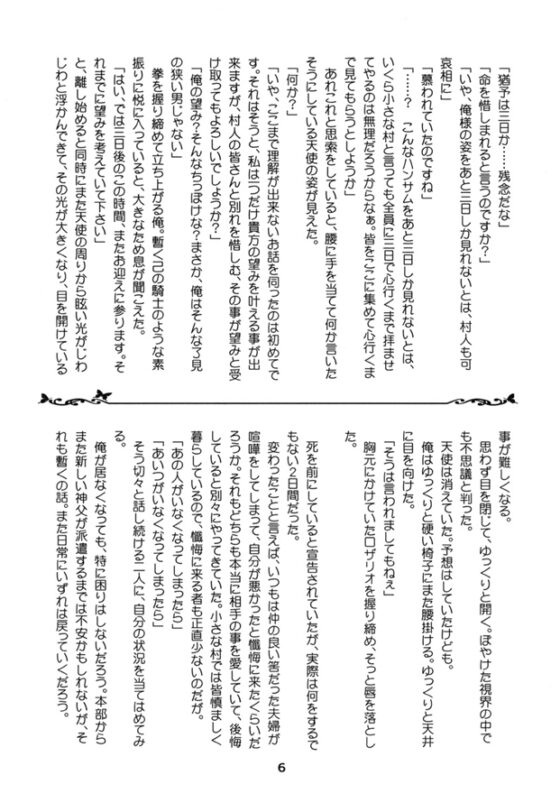 「猶予は三日か……残念だな」
「命を惜しまれると言うのですか？」
「いや、俺様の姿をあと三日しか見れないとは、村人も可
哀相に」
「慕われていたのですね」
「……？　こんなハンサムをあと三日しか見れないとは、
いくら小さな村と言っても全員に三日で心行くまで拝ませ
てやるのは無理だろうからなぁ。皆をここに集めて心行くま
で見てもらうとしようか」
あれこれと思索をしていると、腰に手を当てて何か言いた
そうにしている天使の姿が見えた。
「何か？」
「いや、ここまで理解が出来ないお話を伺ったのは初めてで
す。それはそうと、私は一つだけ貴方の望みを叶える事が出
来ますが、村人の皆さんと別れを惜しむ、その事が望みと受
け取ってもよろしいでしょうか？」
「俺の望み？そんなちっぽけな？まさか、俺はそんな了見
の狭い男じゃない」
拳を握り締めて立ち上がる俺。暫く己の騎士のような素
振りに悦に入っていると、大きなため息が聞こえた。
「はい、では三日後のこの時間、またお迎えに参ります。そ
れまでに望みを考えていて下さい」
と、離し始めると同時にまた天使の周りから眩い光がじわ
じわと浮かんできて、その光が大きくなり、目を開けている
事が難しくなる。
思わず目を閉じて、ゆっくりと開く。ぼやけた視界の中で
も不思議と判った。
天使は消えていた。予想はしていたけども。
俺はゆっくりと硬い椅子にまた腰掛ける。ゆっくりと天井
に目を向けた。
「そうは言われましてもねぇ」
胸元にかけていたロザリオを握り締め、そっと唇を落とし
た。
死を前にしていると宣告されていたが、実際は何をするで
もない２日間だった。
変わったことと言えば、いつもは仲の良い筈だった夫婦が
喧嘩をしてしまって、自分が悪かったと懺悔に来たくらいだ
ろうか。それもどちらも本当に相手の事を愛していて、後悔
していると別々にやってきていた。小さな村では皆慎ましく
暮らしているので、懺悔に来る者も正直少ないのだが。
「あの人がいなくなってしまったら」
「あいつがいなくなってしまったら」
そう切々と話し続ける二人に、自分の状況を当てはめてみ
る。
俺が居なくなっても、特に困りはしないだろう。本部から
また新しい神父が派遣するまでは不安かもしれないが、そ
れも暫くの話。また日常にいずれは戻っていくだろう。
6